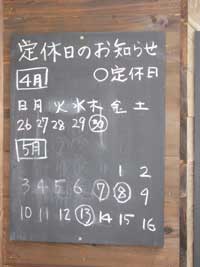 定休日のお知らせ
4月 ○定休日
日 月 火 水 木 金 土
26 27 28 29 30
5月
1 2
3 4 5 6 7 8 9
10 11 12 13 14 15 16